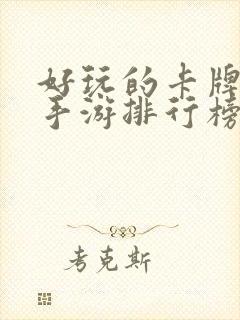 好玩的卡牌
手游排行榜
考克斯